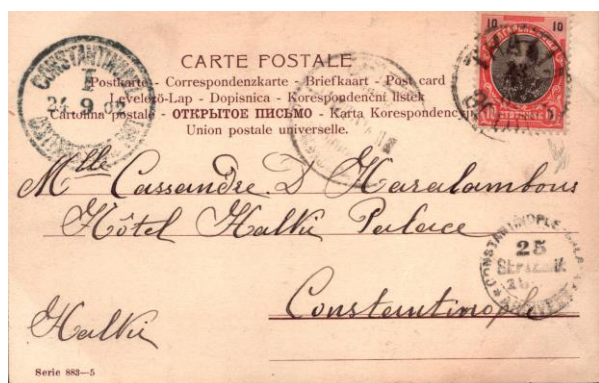 CARTE POSTALE
Postkarte - Correspondenzkarte - Briefkaart - Post card
Levelező-Lap - Dopisnica - Korespondenční lístek
Cartolina postale - ОТКРЫТОЕ ПИСЬМО - Karta Korespondencyjna
Union postale universelle.
10 10
CONSTANTINOPLE
24 9 06
Mlle Cassandre D Haralambous
Hôtel Halki Palace
CONSTANTINOPLE
25
Constantinople
Halki
Serie 883—5